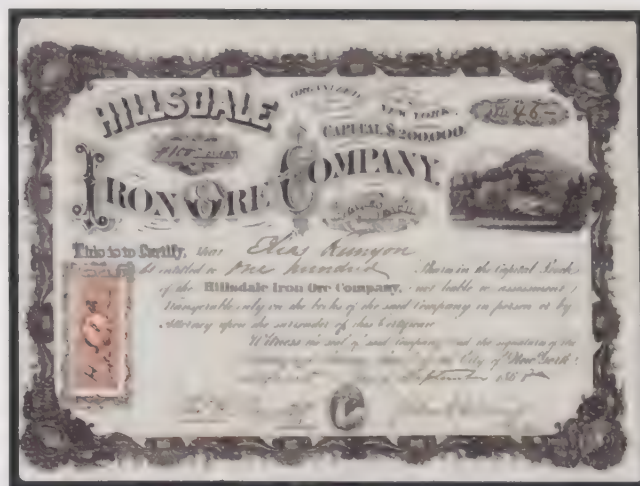 HILLSDALE
ORGANIZED NEW YORK.
No. 46
CAPITAL $200,000.
IRON ORE COMPANY.
This is to Certify, that Elias Runyon
is entitled to One hundred Shares in the Capital Stock
of the Hillsdale Iron Ore Company, not liable to assessment,
transferable only on the books of the said Company in person or by
Attorney upon the surrender of this Certificate
Witness the seal of said Company and the signatures of the
City of New York
September 186